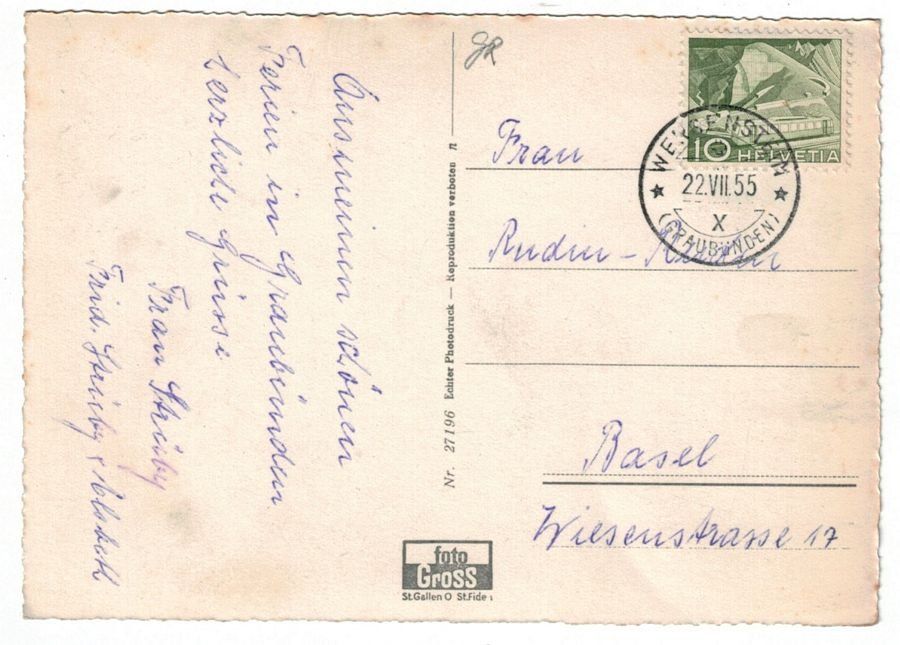 Aus meinen schönen
Ferien in Graubünden
herzliche Grüsse
Frau Strüby
Frid. Strüby & Elsbeth
Nr. 27196 Echter Photodruck — Reproduktion verboten n
GR
Frau
Rudin -
Basel
Wiesenstrasse 17
10 HELVETIA
WEISSENSTEIN
22.VII.55
X
(GRAUBÜNDEN)
foto
Gross
St.Gallen O St.Fide